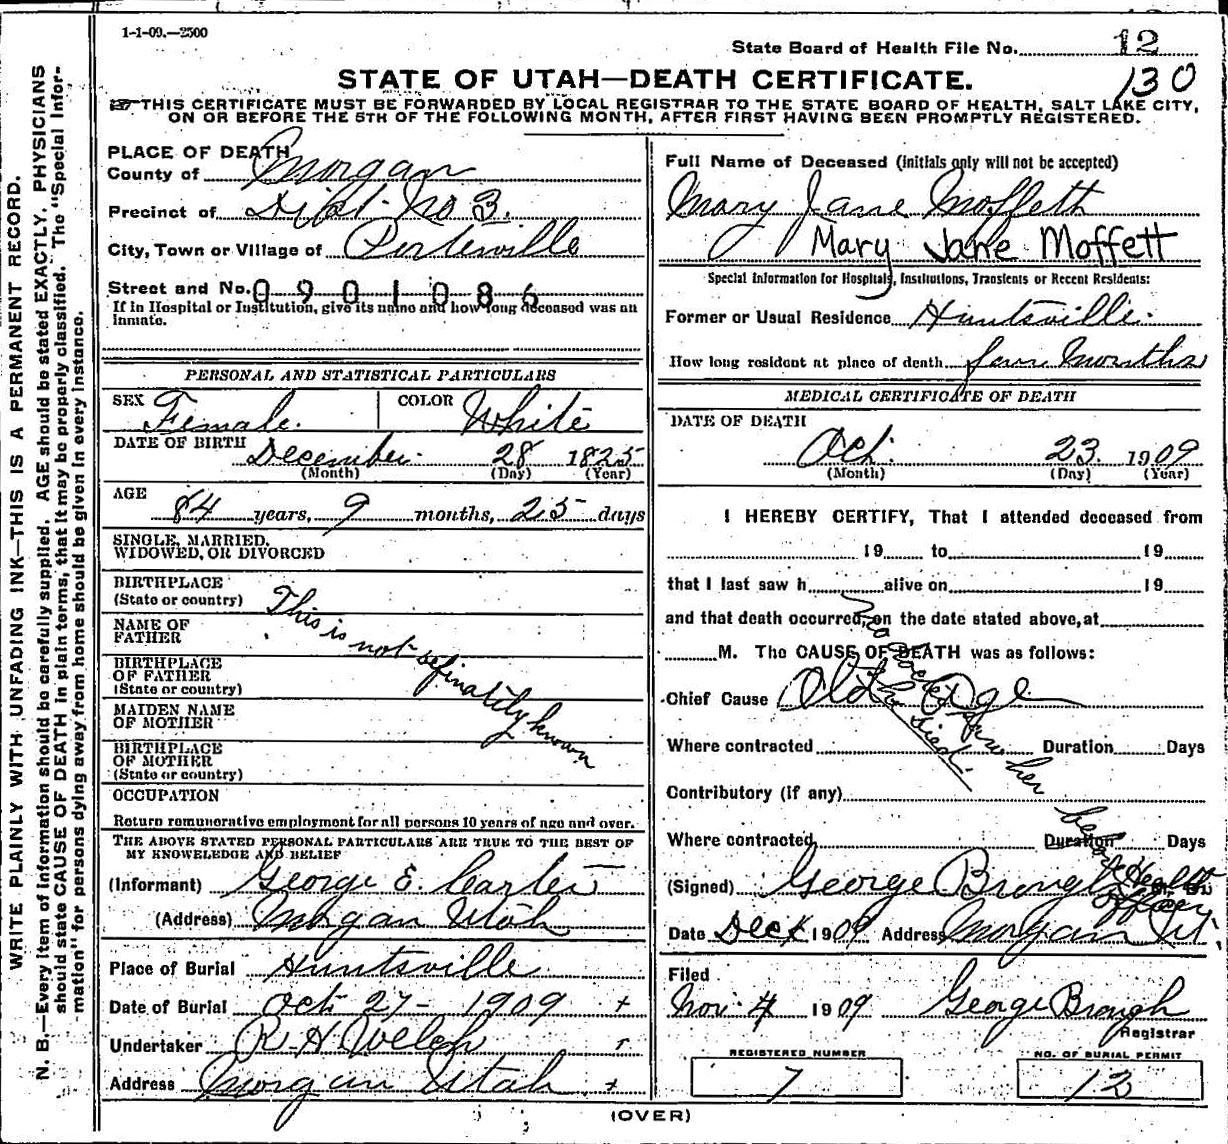 1-1-09.—2500
State Board of Health File No. 12
130
STATE OF UTAH—DEATH CERTIFICATE.
THIS CERTIFICATE MUST BE FORWARDED BY LOCAL REGISTRAR TO THE STATE BOARD OF HEALTH, SALT LAKE CITY,
ON OR BEFORE THE 5TH OF THE FOLLOWING MONTH, AFTER FIRST HAVING BEEN PROMPTLY REGISTERED.
WRITE PLAINLY WITH UNFADING INK—THIS IS A PERMANENT RECORD.
N. B.—Every item of information should be carefully supplied. AGE should be stated EXACTLY. PHYSICIANS
should state CAUSE OF DEATH in plain terms, that it may be properly classified. The "Special Infor-
mation" for persons dying away from home should be given in every instance.
PLACE OF DEATH
County of Morgan
Precinct of Dist. No 3.
City, Town or Village of Porterville
Street and No. 0901086
If in Hospital or Institution, give its name and how long deceased was an
inmate.
PERSONAL AND STATISTICAL PARTICULARS
SEX Female. COLOR White
DATE OF BIRTH December 28 1825
(Month) (Day) (Year)
AGE
84 years, 9 months, 25 days
SINGLE, MARRIED,
WIDOWED, OR DIVORCED
BIRTHPLACE
(State or country)
NAME OF
FATHER
BIRTHPLACE
OF FATHER
(State or country)
MAIDEN NAME
OF MOTHER
BIRTHPLACE
OF MOTHER
(State or country)
This is not definatily known
OCCUPATION
Return remunerative employment for all persons 10 years of age and over.
THE ABOVE STATED PERSONAL PARTICULARS ARE TRUE TO THE BEST OF
MY KNOWELEDGE AND BELIEF
(Informant) George E. Carter
(Address) Morgan Utah
Place of Burial Huntsville
Date of Burial Oct 27 - 1909 +
Undertaker R H Welch
Address Morgan Utah +
Full Name of Deceased (initials only will not be accepted)
Mary Jane Moffett
Mary Jane Moffett
Special Information for Hospitals, Institutions, Transients or Recent Residents:
Former or Usual Residence Huntsville.
How long resident at place of death Months
MEDICAL CERTIFICATE OF DEATH
DATE OF DEATH
Oct. 23. 1909
(Month) (Day) (Year)
I HEREBY CERTIFY, That I attended deceased from
19 to 19
that I last saw h alive on 19
and that death occurred, on the date stated above, at
M. The CAUSE OF DEATH was as follows:
Chief Cause Old Age
no doctor saw her before she died.
Where contracted Duration Days
Contributory (if any)
Where contracted Duration Days
(Signed) George Brough Health Officer
Date 1909 Address Morgan Ut.
Filed
Nov. 4 1909 George Brough
Registrar
REGISTERED NUMBER
7
NO. OF BURIAL PERMIT
12
(OVER)